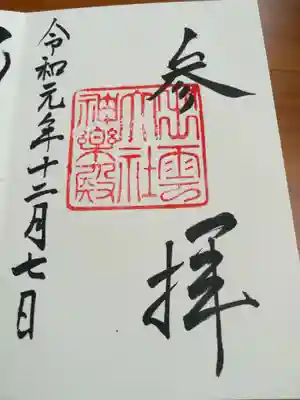 参拝
出雲
大社
神樂殿
令和元年十二月七日